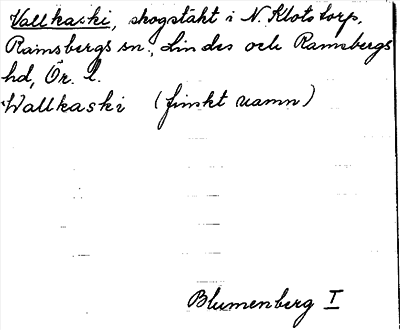 Vallkaski, skogstäkt i N. Klotstorp,
Ramsbergs sn., Lindes och Ramsbergs
hd, Ör. l.
Wallkaski (finskt namn)
Blumenberg I